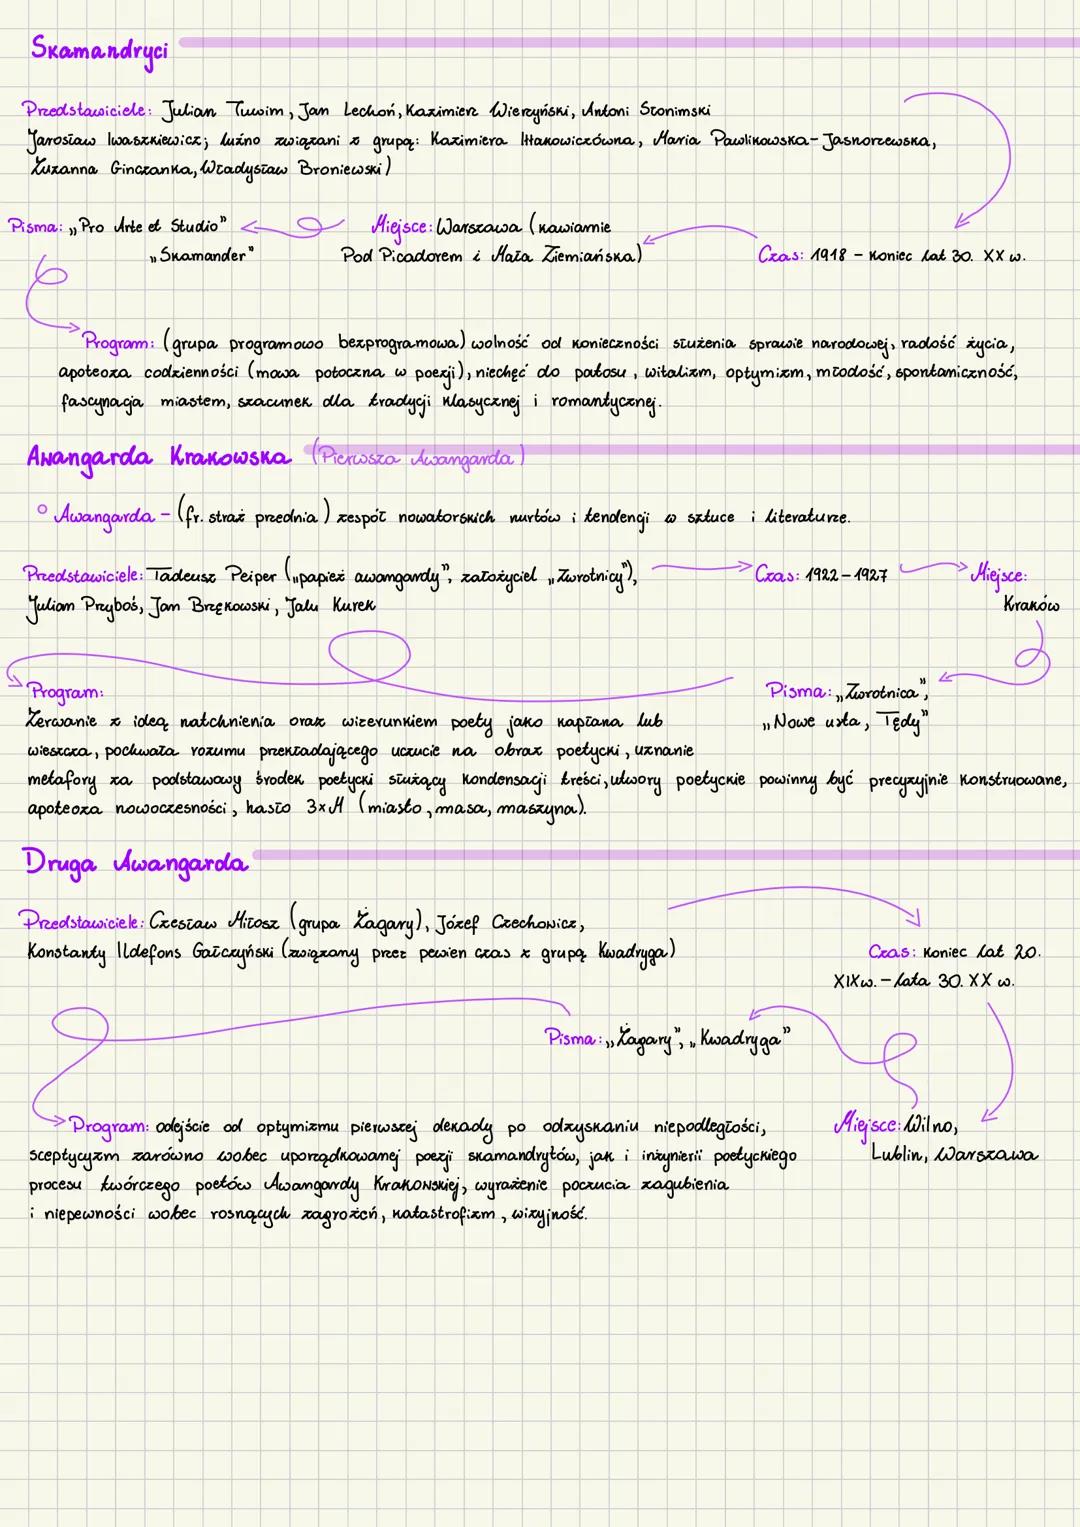 Skamandryci
Przedstawiciele: Julian Tuwim, Jan Lechoń, Kazimierz Wierzyński, Antoni Słonimski
Jarosław Iwaszkiewicz; luźno związani z grupą: Kazimiera Iłłakowiczówna, Maria Pawlikowska-Jasnorzewska,
Zuzanna Ginczanka, Władysław Broniewski)
Pisma: „Pro Arte et Studio"
„Skamander"
Miejsce: Warszawa (kawiarnie
Pod Picadorem i Mała Ziemiańska)
Czas: 1918 - koniec lat 30. XX w.
Program: (grupa programowo bezprogramowa) wolność od konieczności służenia sprawie narodowej, radość życia,
apoteoza codzienności (mowa potoczna w poezji), niechęć do patosu, witalizm, optymizm, młodość, spontaniczność,
fascynacja miastem, szacunek dla tradycji klasycznej i romantycznej.
Awangarda Krakowska (Pierwsza Awangarda)
Awangarda - (fr. straż przednia) zespół nowatorskich nurtów i tendencji w sztuce i literaturze.
Przedstawiciele: Tadeusz Peiper („papież awangardy", założyciel „Zwrotnicy"),
Julian Przyboś, Jan Brzękowski, Jalu Kurek
Czas: 1922-1927
Miejsce:
Kraków
Pisma: „Zwrotnica",
„Nowe usta, Tędy"
Program:
Zerwanie z ideą natchnienia oraz wizerunkiem poety jako kapłana lub
wieszcza, pochwała rozumu przekładającego uczucie na obraz poetycki, uznanie
metafory za podstawowy środek poetycki służący kondensacji treści, utwory poetyckie powinny być precyzyjnie konstruowane,
apoteoza nowoczesności, hasło 3xM (miasto, masa, maszyna).
Druga Awangarda
Przedstawiciele: Czesław Miłosz (grupa Żagary), Józef Czechowicz,
Konstanty Ildefons Gałczyński (związany przez pewien czas z grupą Kwadryga)
Czas: koniec lat 20.
XIX w. - lata 30. XX w.
Pisma: „Żagary", „Kwadryga"
Miejsce: Wilno,
Lublin, Warszawa
Program: odejście od optymizmu pierwszej dekady po odzyskaniu niepodległości,
sceptycyzm zarówno wobec uporządkowanej poezji skamandrytów, jak i inżynierii poetyckiego
procesu twórczego poetów Awangardy Krakowskiej, wyrażenie poczucia zagubienia
i niepewności wobec rosnących zagrożeń, katastrofizm, wizyjność.